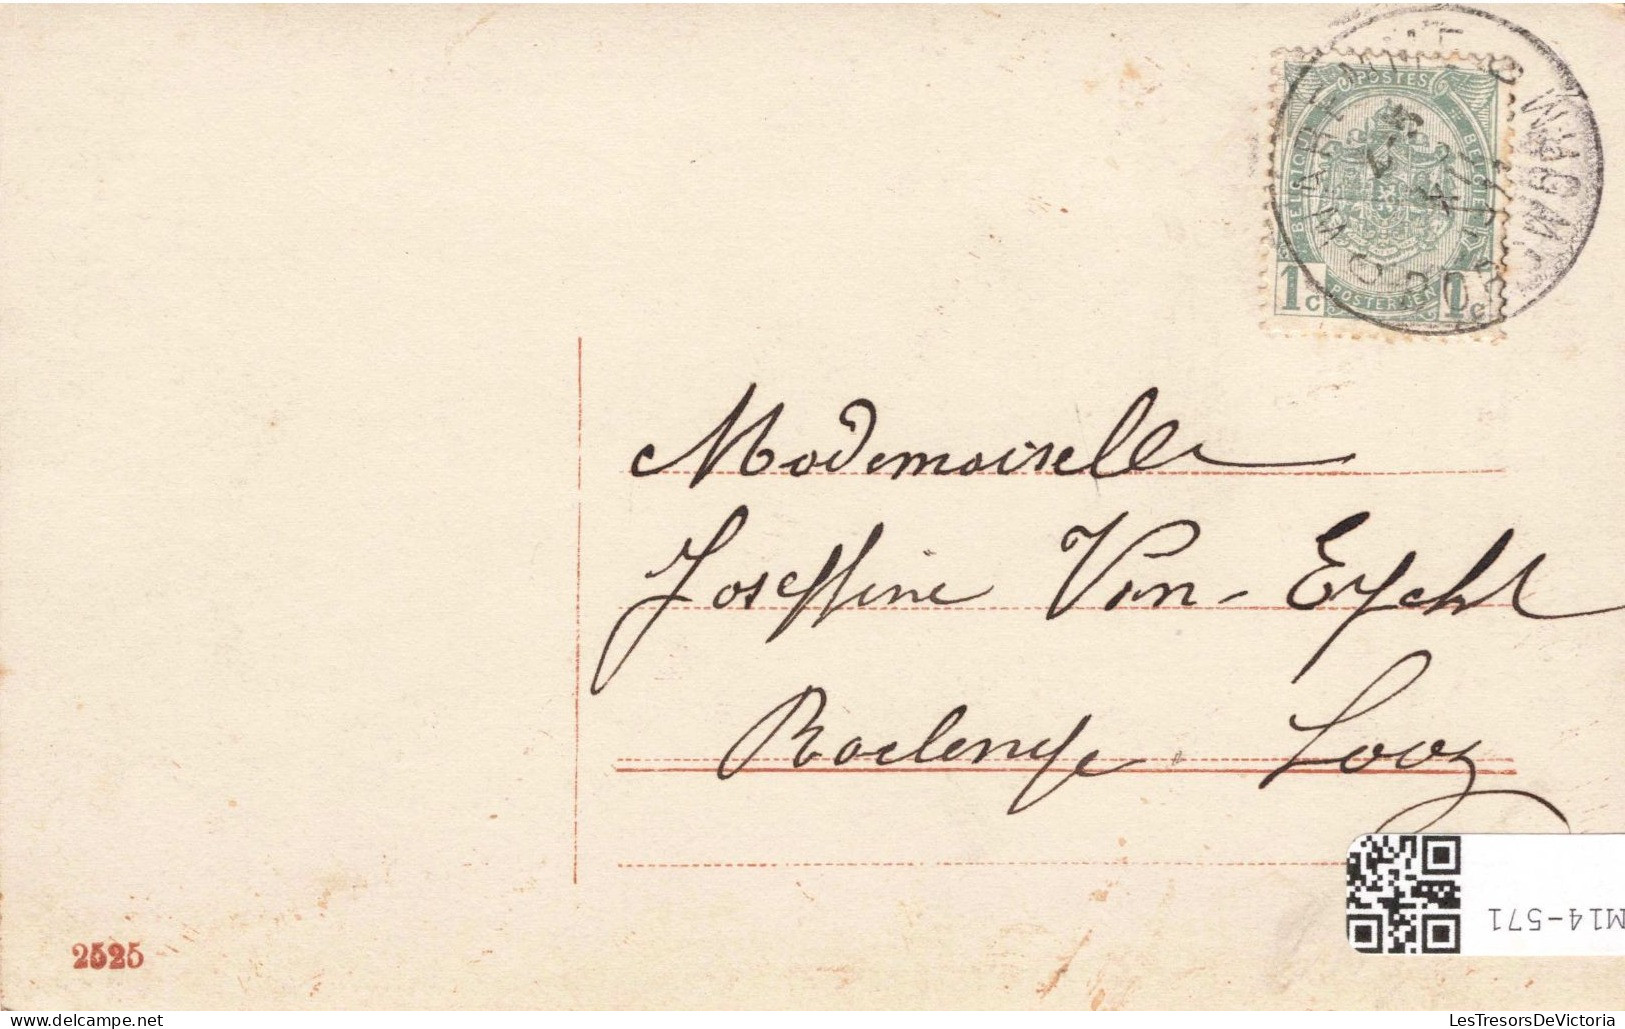 POSTES
BELGIQUE
BELGIË
1c
POSTERIJEN
1c
Mademoiselle
Joseffine Van-Eycht
Roclenge Looz
2525
M14-571
LesTresorsDeVictoria